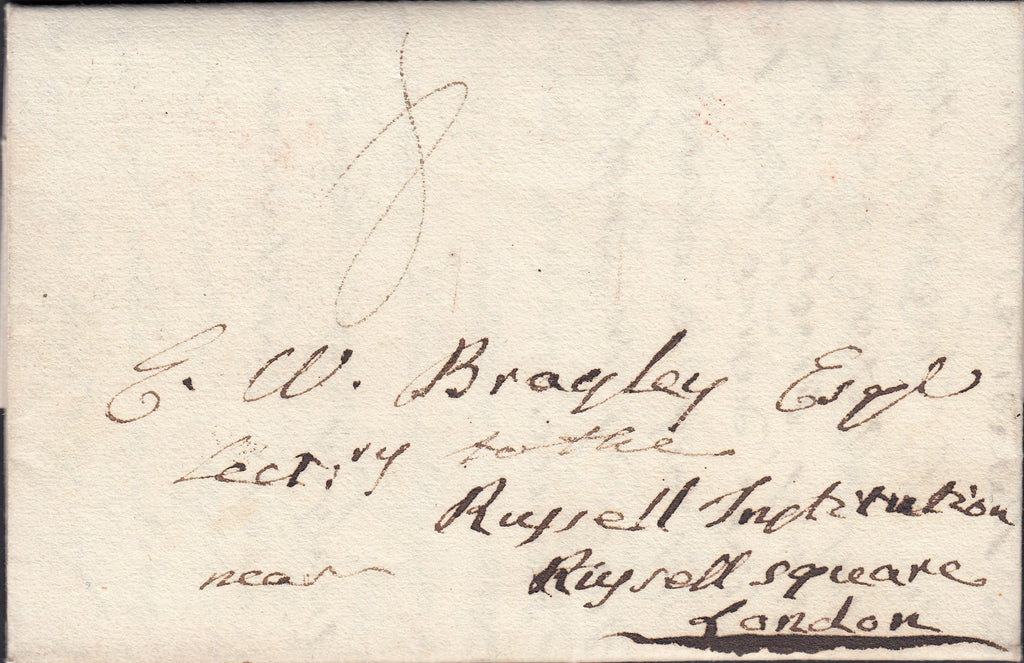 8
E. W. Brayley Esqr
Sectry to the
Russell Institution
near Russell square
London